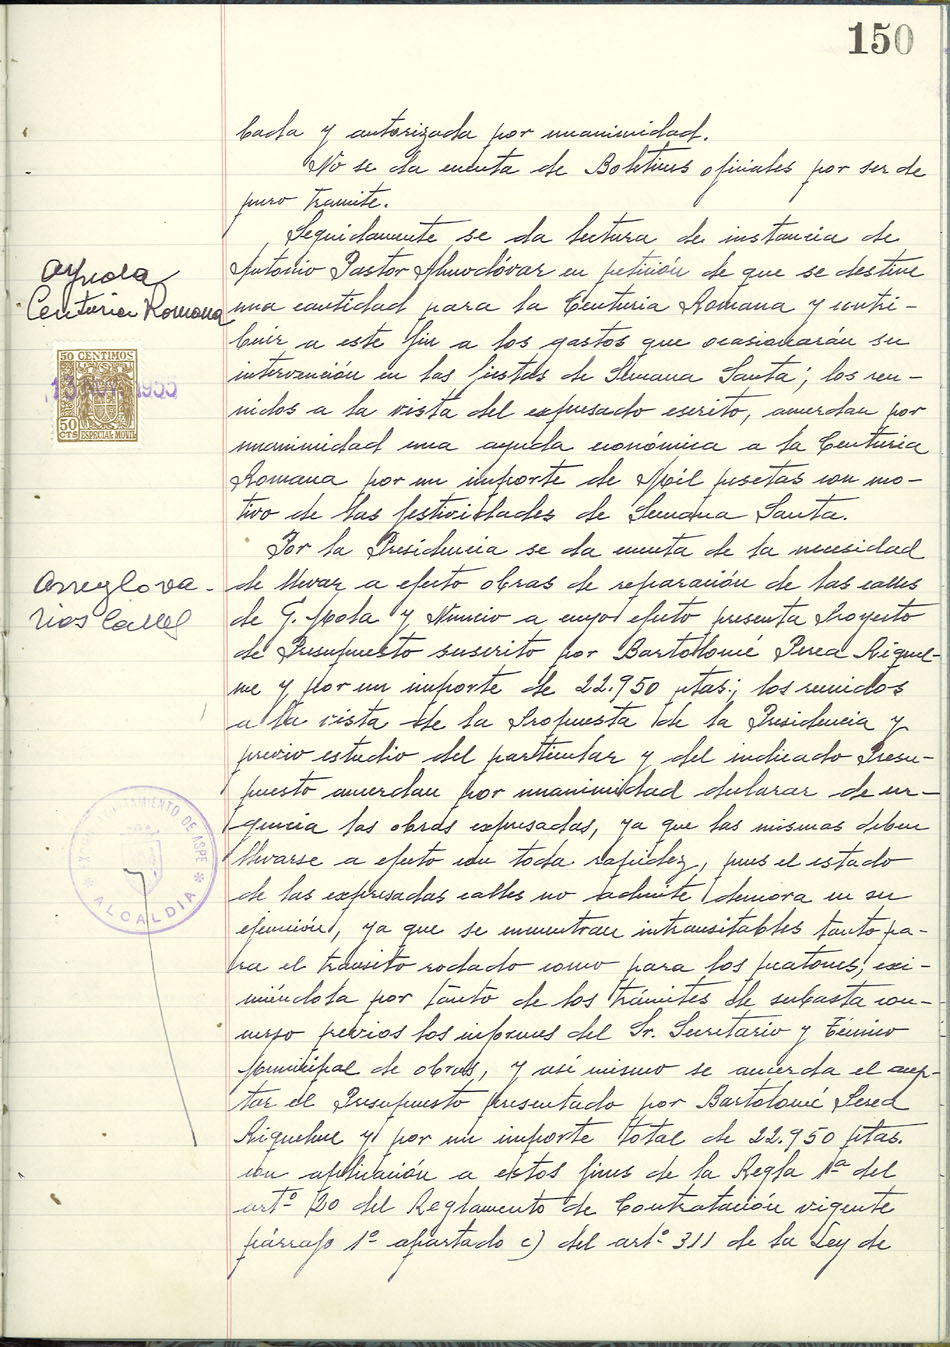 150
bada y autorizada por unanimidad.
No se da cuenta de Boletines oficiales por ser de
puro tramite.
Seguidamente se da lectura de instancia de
Antonio Pastor Almodóvar en petición de que se destine
una cantidad para la Centuria Romana y contri-
buir a este fin a los gastos que ocasionarán su
intervención en las fiestas de Semana Santa; los reu-
nidos a la vista del expresado escrito, acuerdan por
unanimidad una ayuda económica a la Centuria
Romana por un importe de Mil pesetas con mo-
tivo de las festividades de Semana Santa.
Por la Presidencia se da cuenta de la necesidad
de llevar a efecto obras de reparación de las calles
de G. Mola y Nuncio a cuyo efecto presenta Proyecto
de Presupuesto suscrito por Bartolomé Perea Riquel-
me y por un importe de 22.950 ptas.; los reunidos
a la vista de la Propuesta de la Presidencia y
previo estudio del particular y del indicado Presu-
puesto acuerdan por unanimidad declarar de ur-
gencia las obras expresadas, ya que las mismas deben
llevarse a efecto con toda rapidez, pues el estado
de las expresadas calles no admite demora en su
ejecución, ya que se encuentran intransitables tanto pa-
ra el transito rodado como para los peatones; exi-
miéndola por tanto de los trámites de subasta con-
curso previos los informes del Sr. Secretario y Técnico
Municipal de obras, y asi mismo se acuerda el acep-
tar el Presupuesto presentado por Bartolomé Perea
Riquelme y por un importe total de 22.950 ptas.
con aplicación a estos fines de la Regla 1ª del
artº 20 del Reglamento de Contratación vigente
párrafo 1º apartado c) del artº 311 de la Ley de
Ayuda
Centuria Romana
50 CENTIMOS
1955
50
CTS ESPECIAL MOVIL
Arreglo va-
rios Calles
EXCMO. AYUNTAMIENTO DE ASPE
* ALCALDIA *